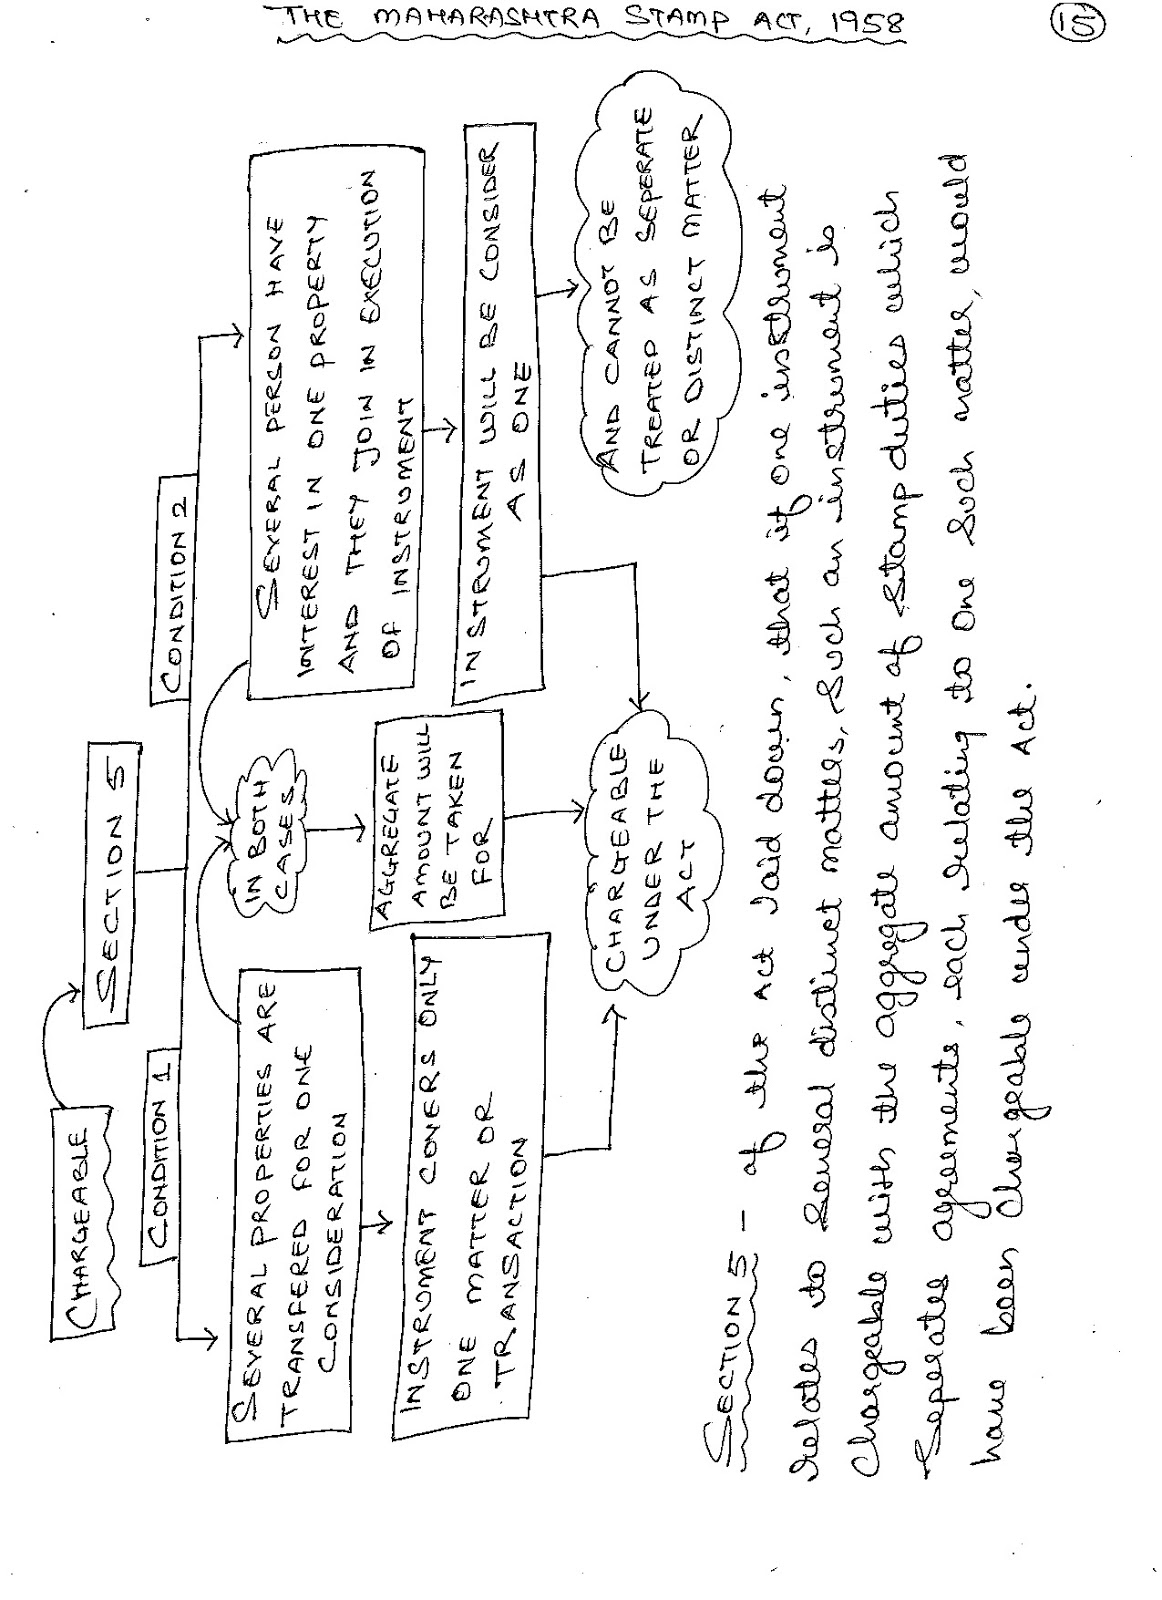 THE MAHARASHTRA STAMP ACT, 1958
15
CHARGEABLE
SECTION 5
CONDITION 1
CONDITION 2
SEVERAL PROPERTIES ARE
TRANSFERED FOR ONE
CONSIDERATION
INSTRUMENT COVERS ONLY
ONE MATTER OR
TRANSACTION
IN BOTH
CASES
AGGREGATE
AMOUNT WILL
BE TAKEN
FOR
SEVERAL PERSON HAVE
INTEREST IN ONE PROPERTY
AND THEY JOIN IN EXECUTION
OF INSTRUMENT
INSTRUMENT WILL BE CONSIDER
AS ONE
AND CANNOT BE
TREATED AS SEPERATE
OR DISTINCT MATTER
CHARGEABLE
UNDER THE
ACT
SECTION 5 - of the Act laid down, that if one instrument
relates to several distinct matters, such an instrument is
chargeable with the aggregate amount of stamp duties which
seperates agreements, each relating to one such matter, would
have been chargeable under the Act.